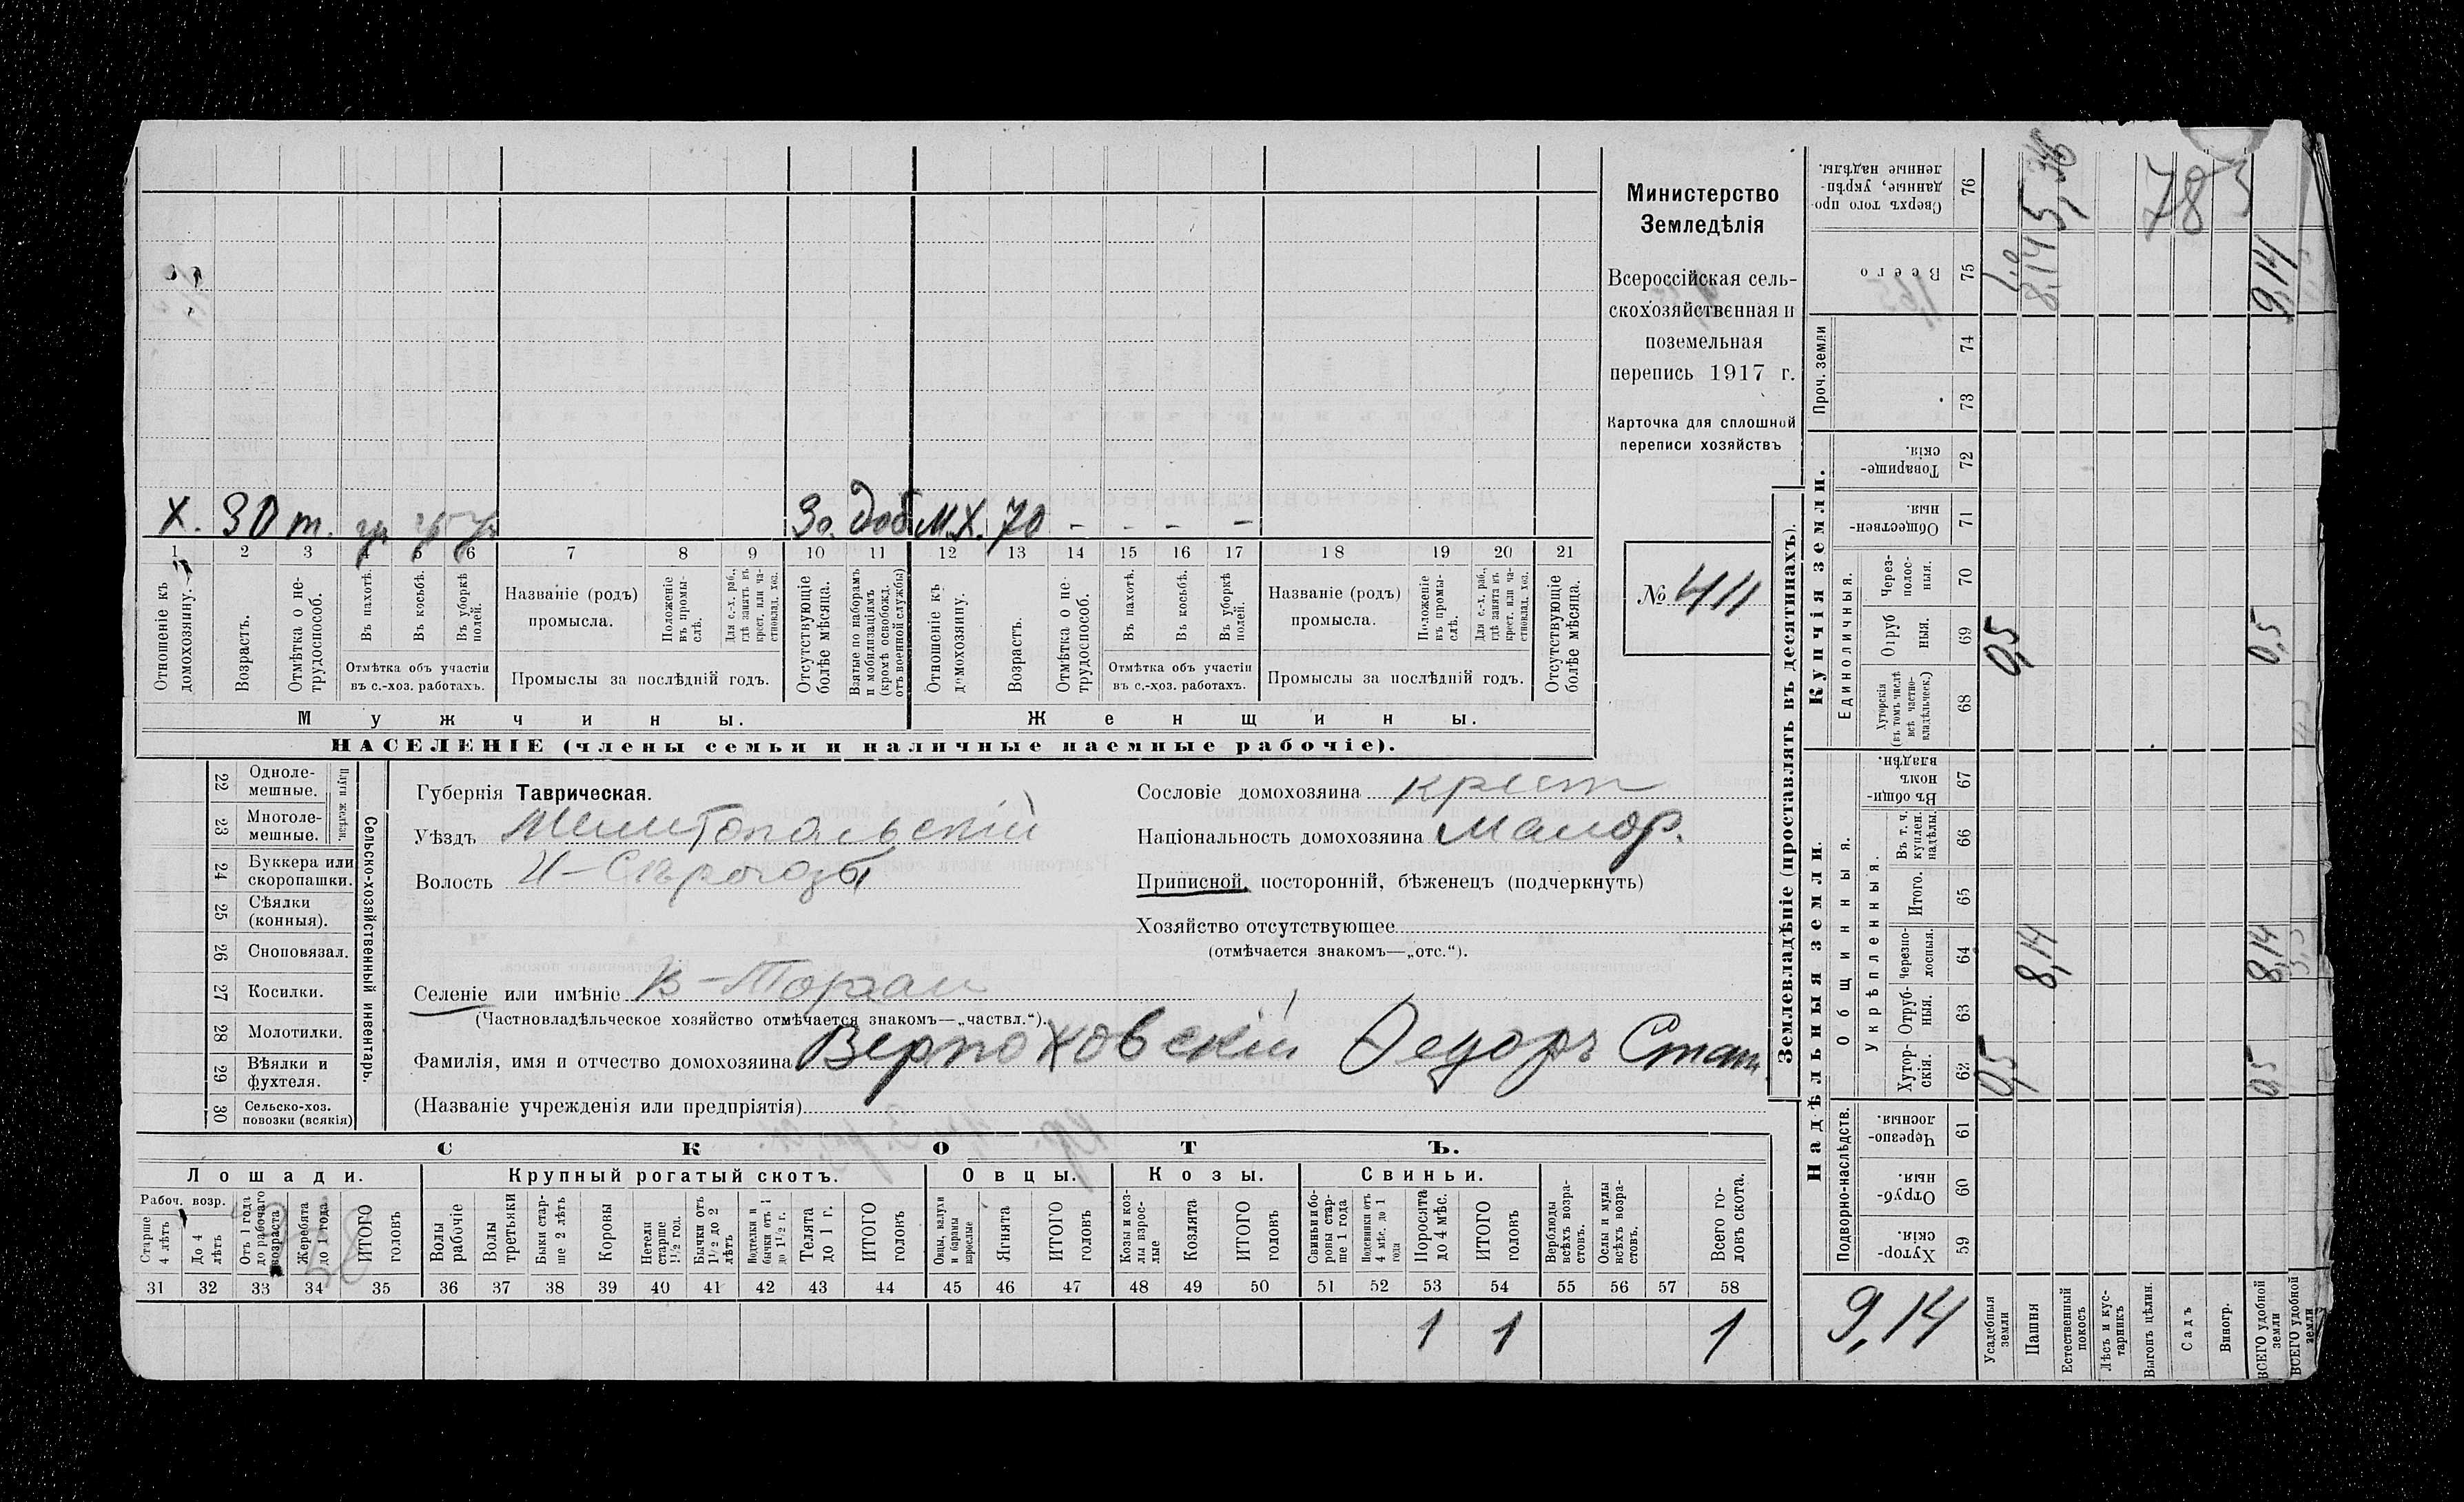 Министерство
Земледѣлія
Всероссійская сель-
скохозяйственная и
поземельная
перепись 1917 г.
Карточка для сплошной
переписи хозяйствъ
№ 411
Х. 30 т. Зо. доб М.Х. 70 - - - -
1 2 3 4 5 6 7 8 9 10 11 12 13 14 15 16 17 18 19 20 21
Отношеніе къ домохозяину.
Возрастъ.
Отмѣтка о не-трудоспособ.
Въ пахотѣ.
Въ косьбѣ.
Въ уборкѣ полей.
Отмѣтка объ участіи
въ с.-хоз. работахъ.
Названіе (родъ)
промысла.
Положеніе въ промы-слѣ.
Для с.-х. раб., гдѣ занятъ въ крест. или ча-стновлад. хоз.
Промыслы за послѣдній годъ.
Отсутствующіе болѣе мѣсяца.
Взятые по наборамъ и мобилизаціямъ (кромѣ освобожд. отъ военной службы)
Отношеніе къ домохозяину.
Возрастъ.
Отмѣтка о не-трудоспособ.
Въ пахотѣ.
Въ косьбѣ.
Въ уборкѣ полей.
Отмѣтка объ участіи
въ с.-хоз. работахъ.
Названіе (родъ)
промысла.
Положеніе въ промы-слѣ.
Для с.-х. раб., гдѣ занята въ крест. или ча-стновлад. хоз.
Промыслы за послѣдній годъ.
Отсутствующіе болѣе мѣсяца.
Мужчины.
Женщины.
НАСЕЛЕНІЕ (члены семьи и наличные наемные рабочіе).
22 Одноле-мешные.
23 Многоле-мешные.
Плуги желѣзн.
24 Буккера или скоропашки.
25 Сѣялки (конныя).
26 Сноповязал.
27 Косилки.
28 Молотилки.
29 Вѣялки и фухтеля.
30 Сельско-хоз. повозки (всякія)
Сельско-хозяйственный инвентарь.
Губернія Таврическая.
Уѣздъ Мелитопольскій
Волость Н-Сѣрогозы
Селеніе или имѣніе В-Торгаи
(Частновладѣльческое хозяйство отмѣчается знакомъ—„частвл.“).
Фамилія, имя и отчество домохозяина Верпоховскій Федоръ Степ
(Названіе учрежденія или предпріятія)
Сословіе домохозяина крест
Національность домохозяина Малор.
Приписной, посторонній, бѣженецъ (подчеркнуть)
Хозяйство отсутствующее
(отмѣчается знакомъ—„отс.“).
СКОТЪ.
Лошади.
Крупный рогатый скотъ.
Овцы.
Козы.
Свиньи.
Рабоч. возр.
Старше 4 лѣтъ
До 4 лѣтъ
Отъ 1 года до рабочаго возраста
Жеребята до 1 года
ИТОГО головъ
Волы рабочіе
Волы третьяки
Быки стар-ше 2 лѣтъ
Коровы
Нетели старше 1½ год.
Бычки отъ 1½ до 2 лѣтъ
Подтелки и бычки отъ 1 до 1½ г.
Телята до 1 г.
ИТОГО головъ
Овцы, валухи и бараны взрослые
Ягнята
ИТОГО головъ
Козы и коз-лы взрос-лые
Козлята
ИТОГО головъ
Свиньи и бо-ровы стар-ше 1 года
Подсвинки отъ 4 мѣс. до 1 года
Поросята до 4 мѣс.
ИТОГО головъ
Верблюды всѣхъ возра-стовъ.
Ослы и мулы всѣхъ возра-стовъ.
Всего го-ловъ скота.
31 32 33 34 35 36 37 38 39 40 41 42 43 44 45 46 47 48 49 50 51 52 53 54 55 56 57 58
1 1 1
Землевладѣніе (проставлять въ десятинахъ).
Надѣльныя земли.
Купчія земли.
Проч. земли
Подворно-наслѣдств.
Общинныя.
Укрѣпленныя.
Единоличныя.
Хутор-скія. 59
Отруб-ныя. 60
Черезпо-лосныя. 61
Хутор-скія. 62
Отруб-ныя. 63
Черезпо-лосныя. 64
Итого. 65
Въ т. ч. куплен. надѣлы. 66
Въ общин-номъ владѣн. 67
Хуторскія (въ томъ числѣ всѣ частно-владѣльческ.) 68
Отруб ныя. 69
Через-полос-ныя. 70
Обществен-ныя. 71
Товарище-скія. 72
73
74
Всего 75
Сверхъ того про-данные, укрѣп-ленные надѣлы. 76
9,14
Усадебныя земли
Пашня
Естественный покосъ
Лѣсъ и кус-тарникъ
Выгонъ цѣлин.
Садъ
Виногр.
ВСЕГО удобной земли
ВСЕГО удобной земли
0,5
8,14
0,5
8,14
0,5
0,5
9,14
8,14
785